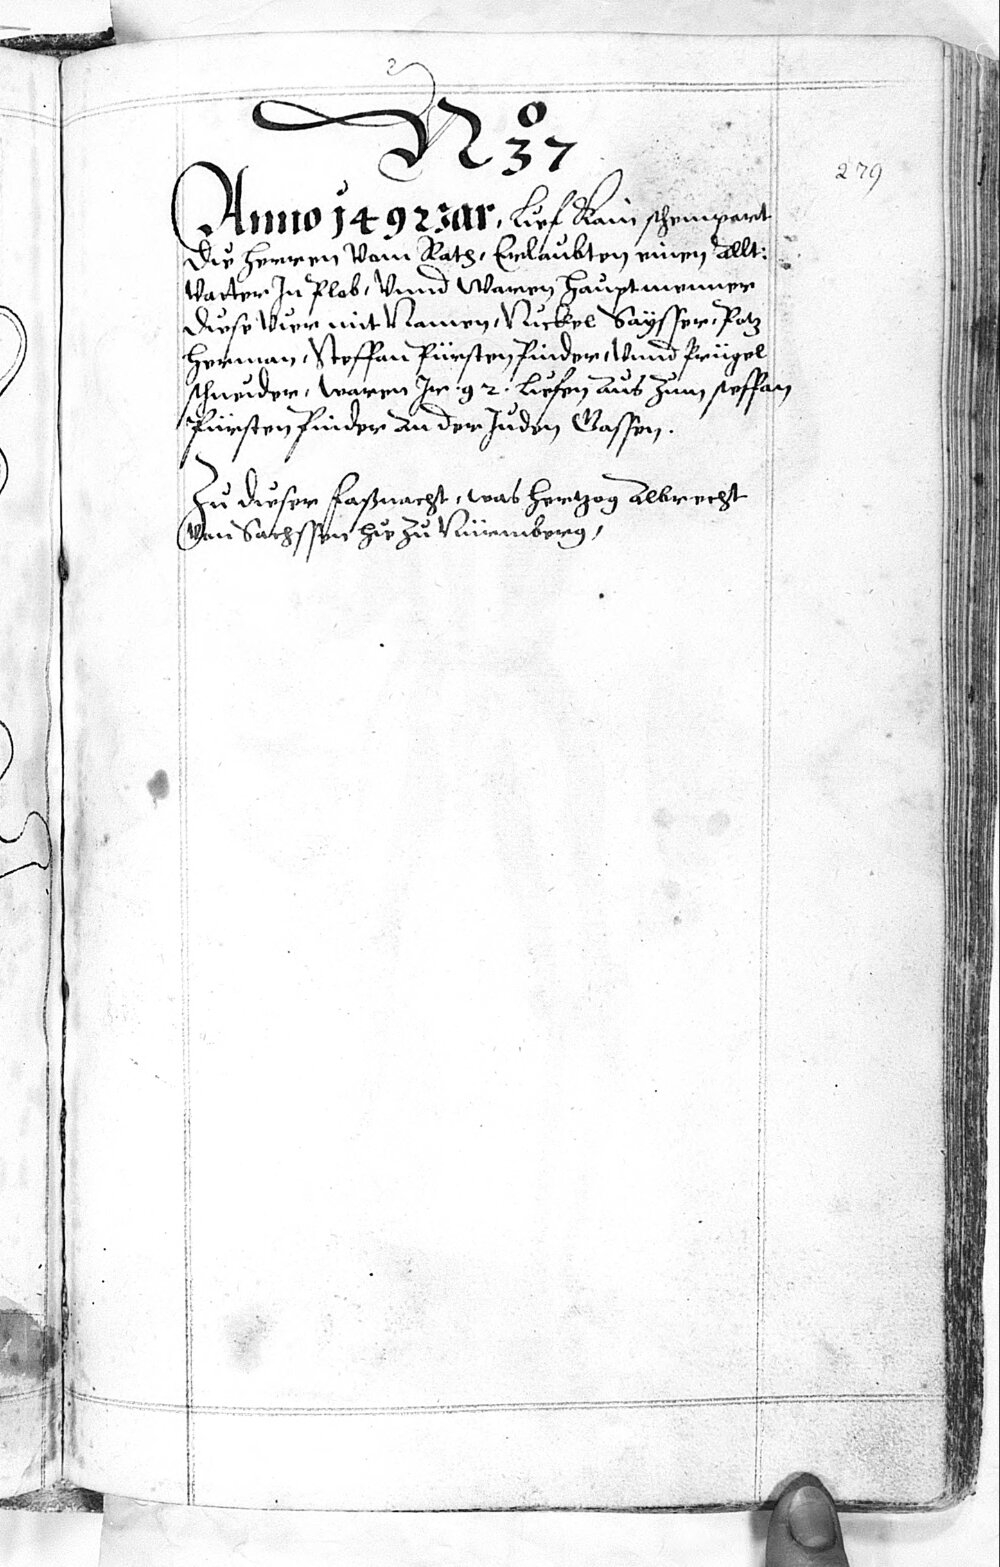 No 37
279
Anno 1492 Jar, Lief Kain schempart
Die Herren Vom Rath, Erlaubten einen Allt:
Vatter In Plob, Vnnd Waren Hauptmenner
Diese Vier mit Namen, Nickel Saysser, Potz
Herman, Steffan Fürsten Pinder, Vnnd Prügel
schneider, waren Jr 92. Liefen Aus Zum steffan
Fürsten Pinder An der Juden Gassen.
Zu dieser Faßnacht, was Hertzog Albrecht
Van Sachssen hie Zu Nürmberg,